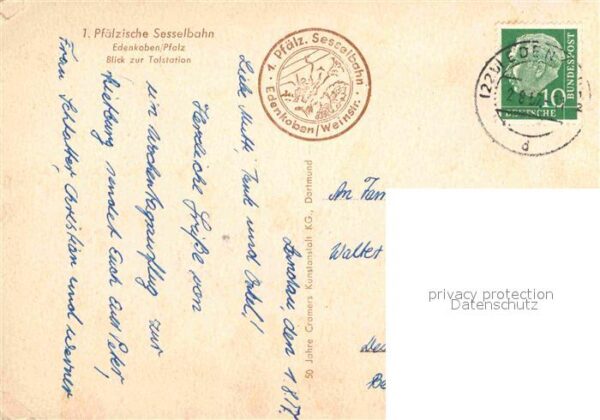 1. Pfälzische Sesselbahn
Edenkoben/Pfalz
Blick zur Talstation
1. Pfälz. Sesselbahn
Edenkoben/Weinstr.
(22b) EDENK
d
10
DEUTSCHE
BUNDESPOST
Landau, den 1.8.
Liebe Mutti, Tante und Onkel!
Herzliche Grüße von
ein zur
sendet Euch Euer Peter,
Frau Christian und Werner
50 Jahre Cramers Kunstanstalt KG., Dortmund
An Fam
Walter
privacy protection
Datenschutz